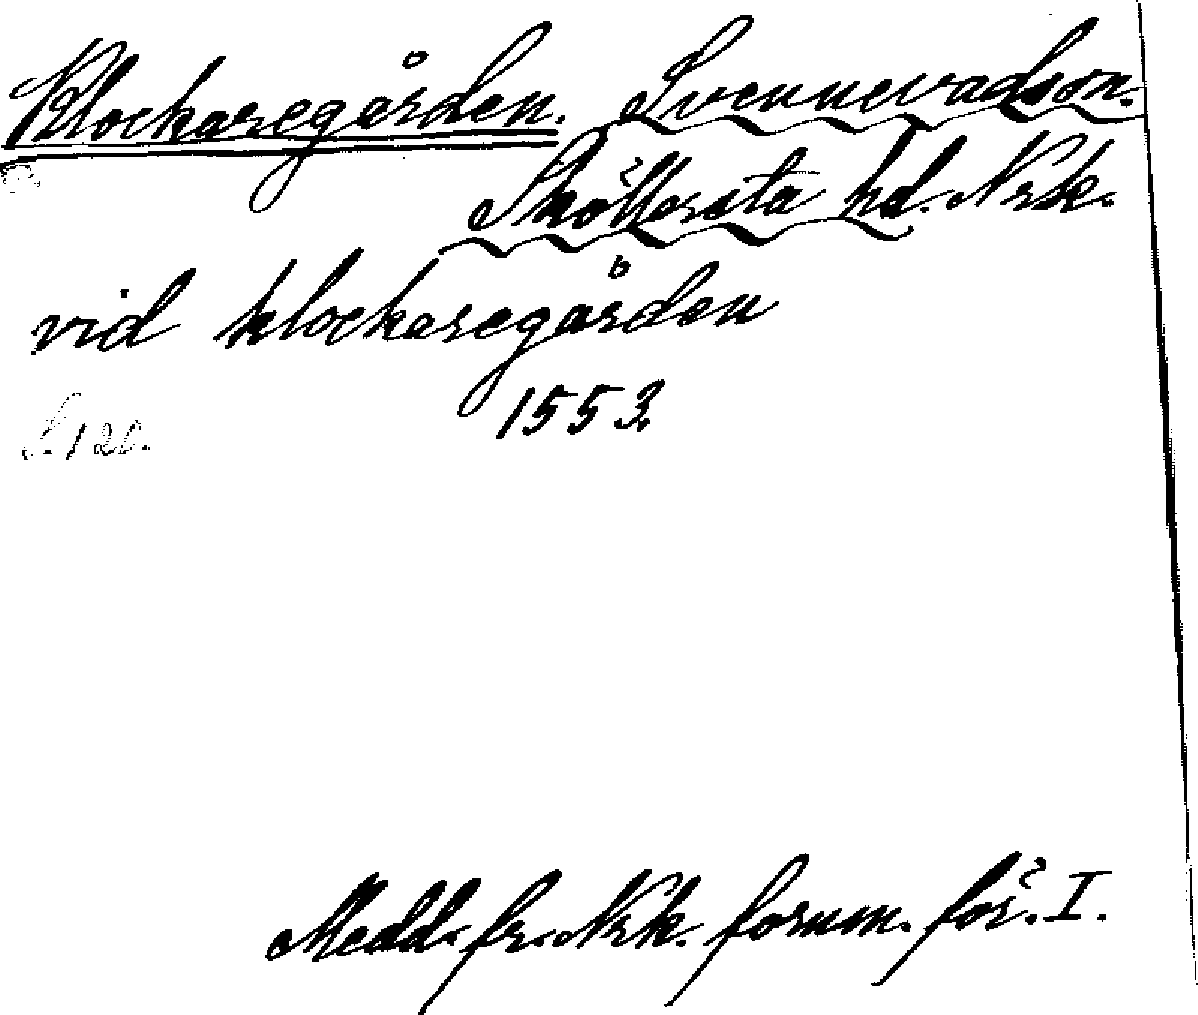 Klockaregården. Svennevadson.
Sköllersta hd. Nrk.
vid klockaregården
1553.
S. 120.
Medd. fr. Nrk. fornm. för. I.